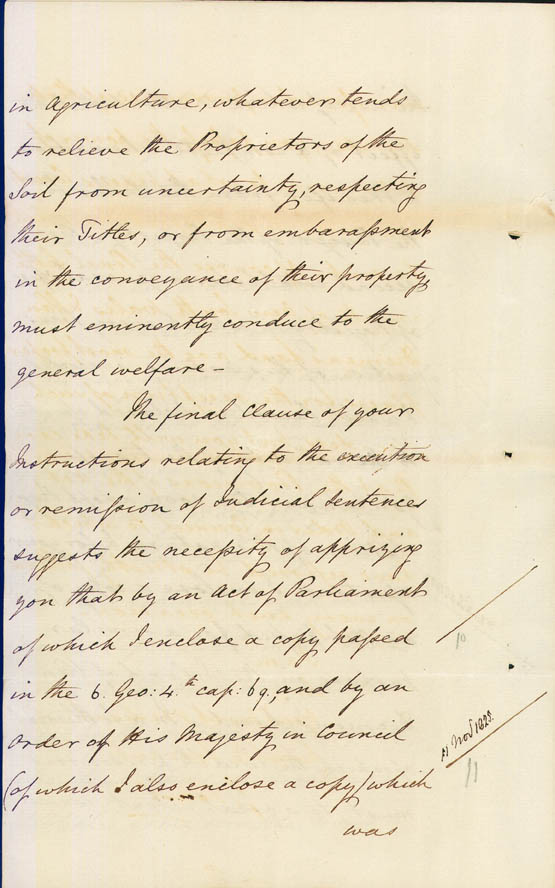 in Agriculture, whatever tends
to relieve the Proprietors of the
Soil from uncertainty, respecting
their Titles, or from embarassment
in the conveyance of their property,
must eminently conduce to the
general welfare –
The final Clause of your
Instructions relating to the execution
or remission of Judicial Sentences
suggests the necessity of apprizing
you that by an Act of Parliament
of which I enclose a copy passed
in the 6. Geo: 4.th cap: 69, and by an
Order of His Majesty in Council
(of which I also enclose a copy) which
was
10
11 Novr 1825.
11